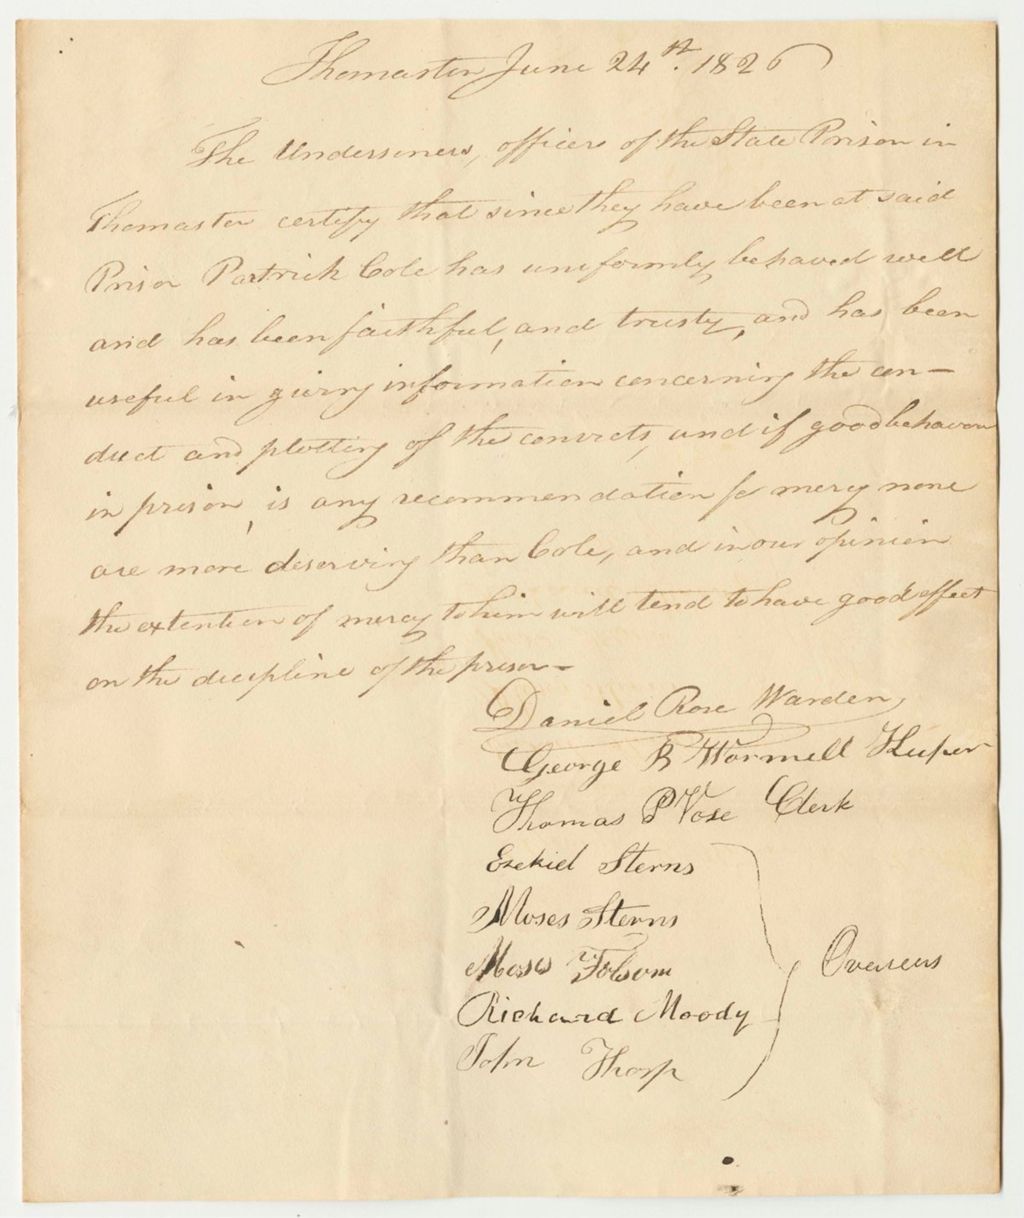 Thomaston June 24th. 1826
The Undersiners, officers of the State Prison in
Thomaston certify that since they have been at said
Prison Partrick Cole has uniformly behaved well
and has been faithful, and trusty, and has been
useful in giving information concerning the con-
duct and plotting of the convicts, and if good behavour
in prison, is any recommendation for mercy none
are more deserving than Cole, and in our opinion
the extention of mercy to him will tend to have good effect
on the discipline of the prison-
Daniel Rose Warden
George B Wormell Keeper
Thomas P Vose Clerk
Ezekiel Sterns
Moses Sterns
Moses Folsom Overseers
Richard Moody
John Thorp